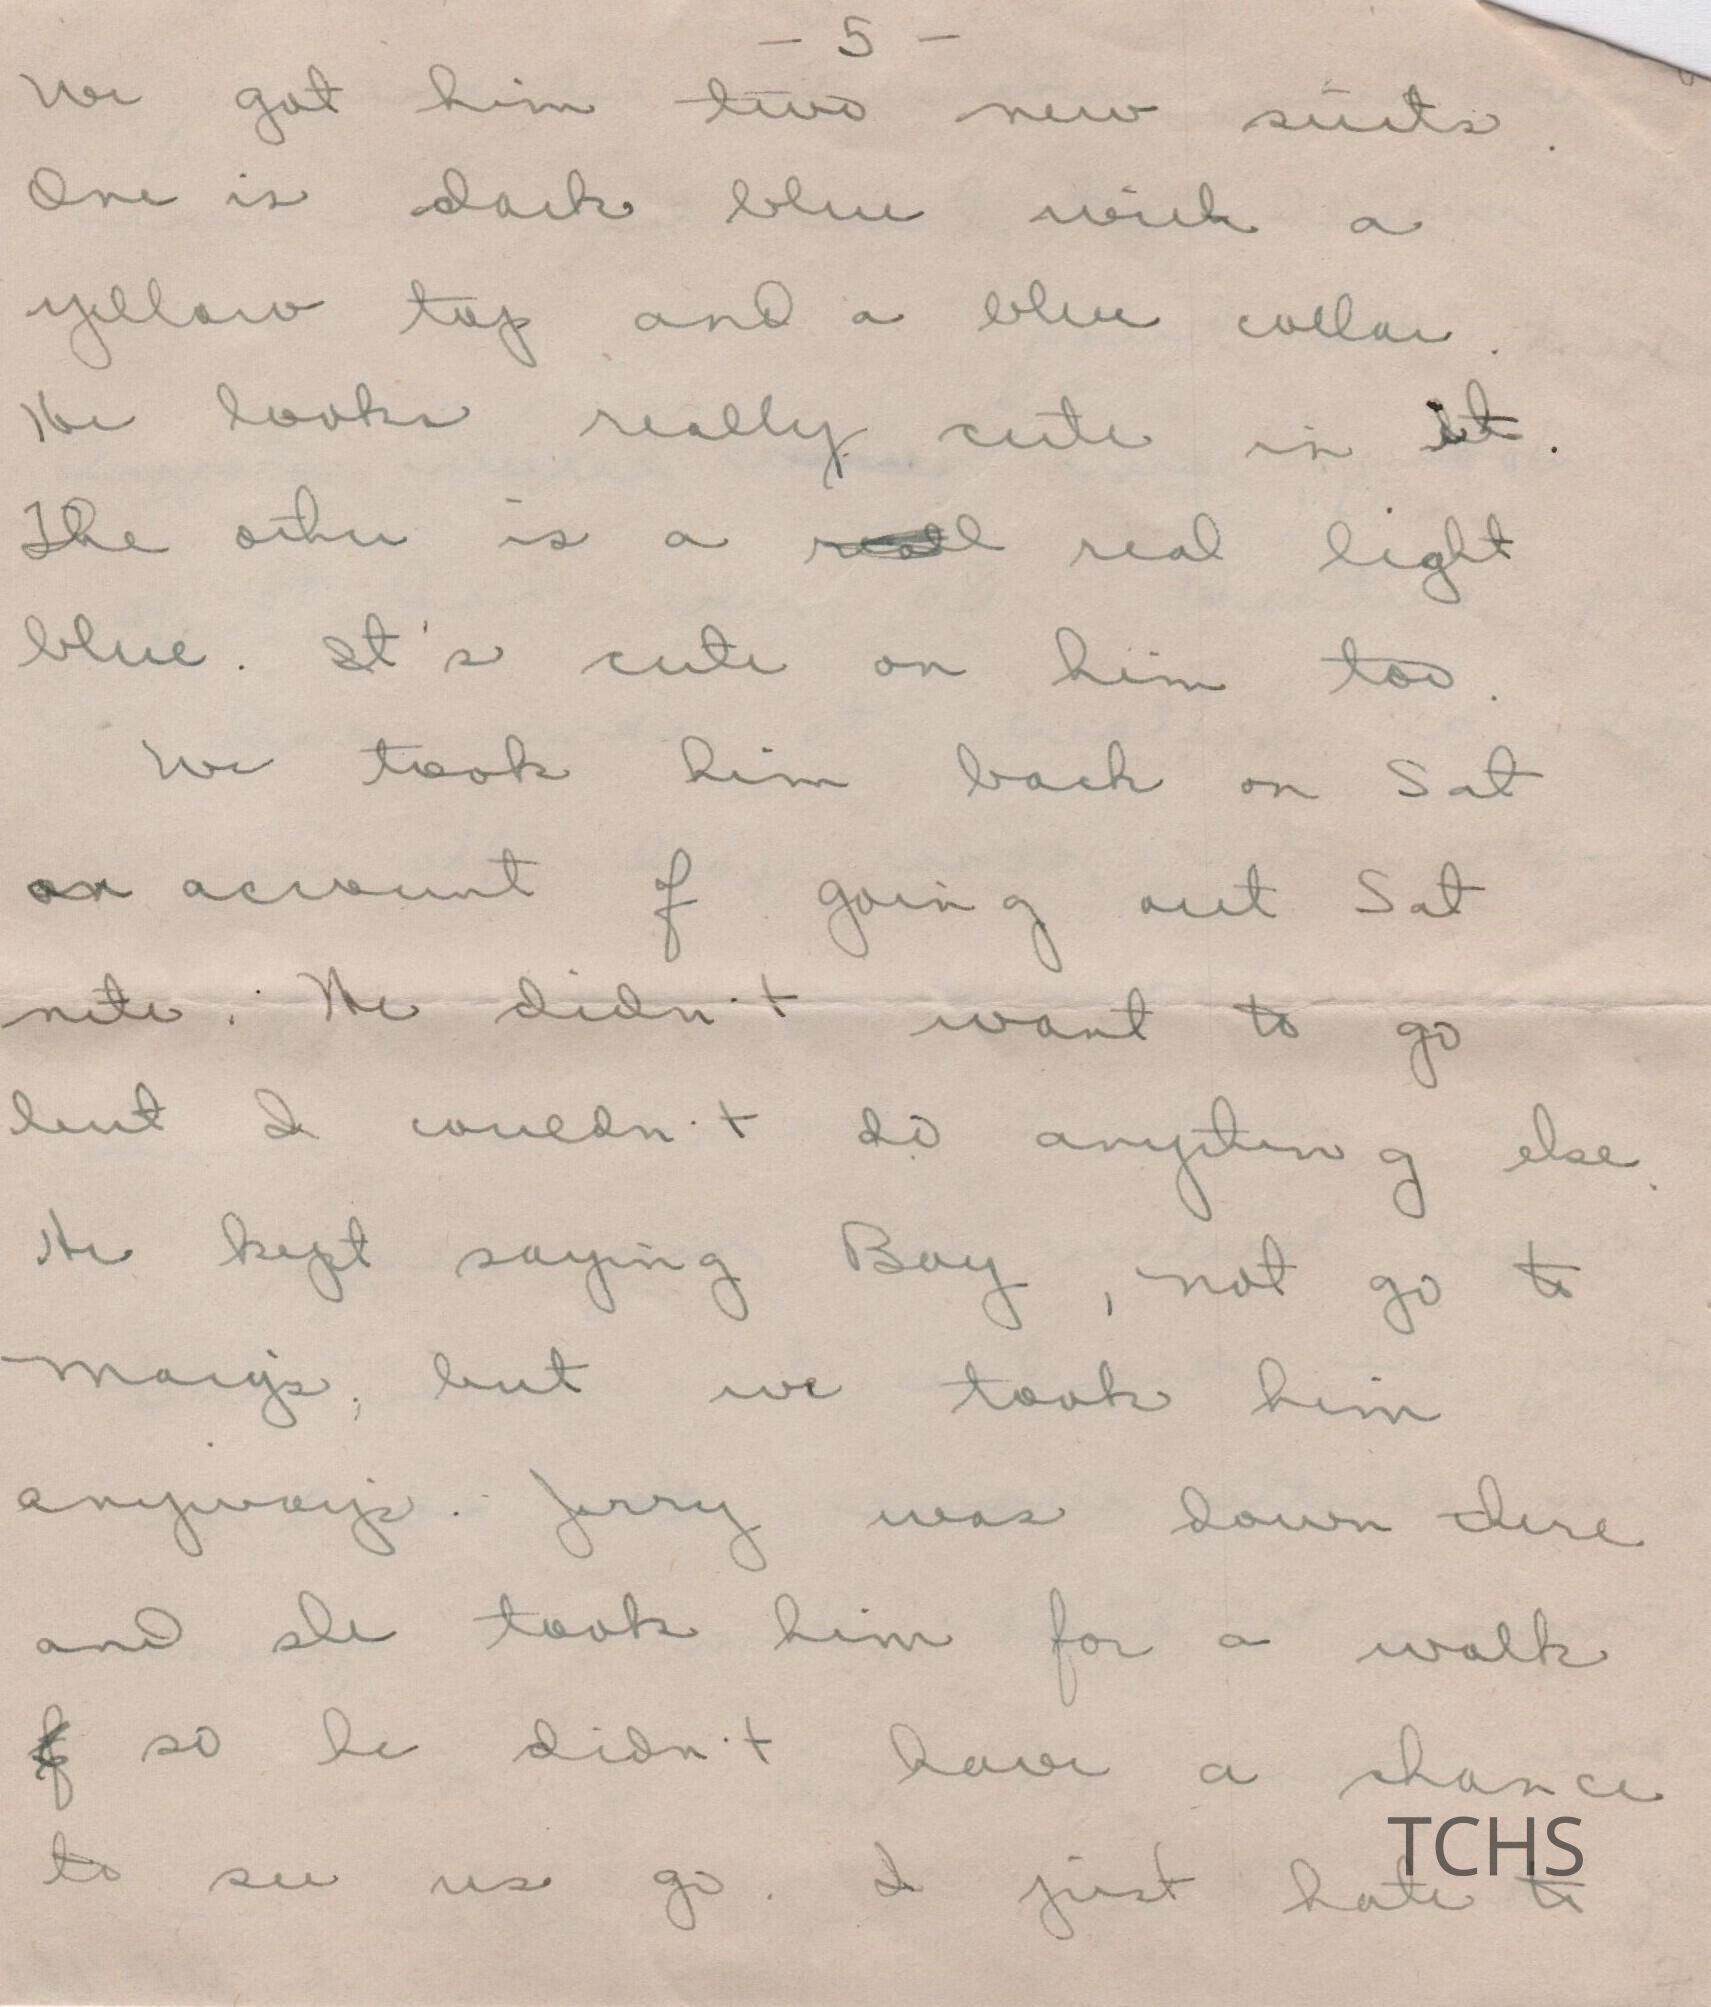 - 5 -
We got him two new suits.
One is dark blue with a
yellow top and a blue collar.
He looks really cute in it.
The other is a real real light
blue. It's cute on him too.
We took him back on Sat
on account of going out Sat
nite. He didn't want to go
but I couldn't do anything else.
He kept saying Bay, not go to
Marg's, but we took him
anyways. Jerry was down there
and she took him for a walk
so he didn't have a chance
to see us go. I just hate to
TCHS